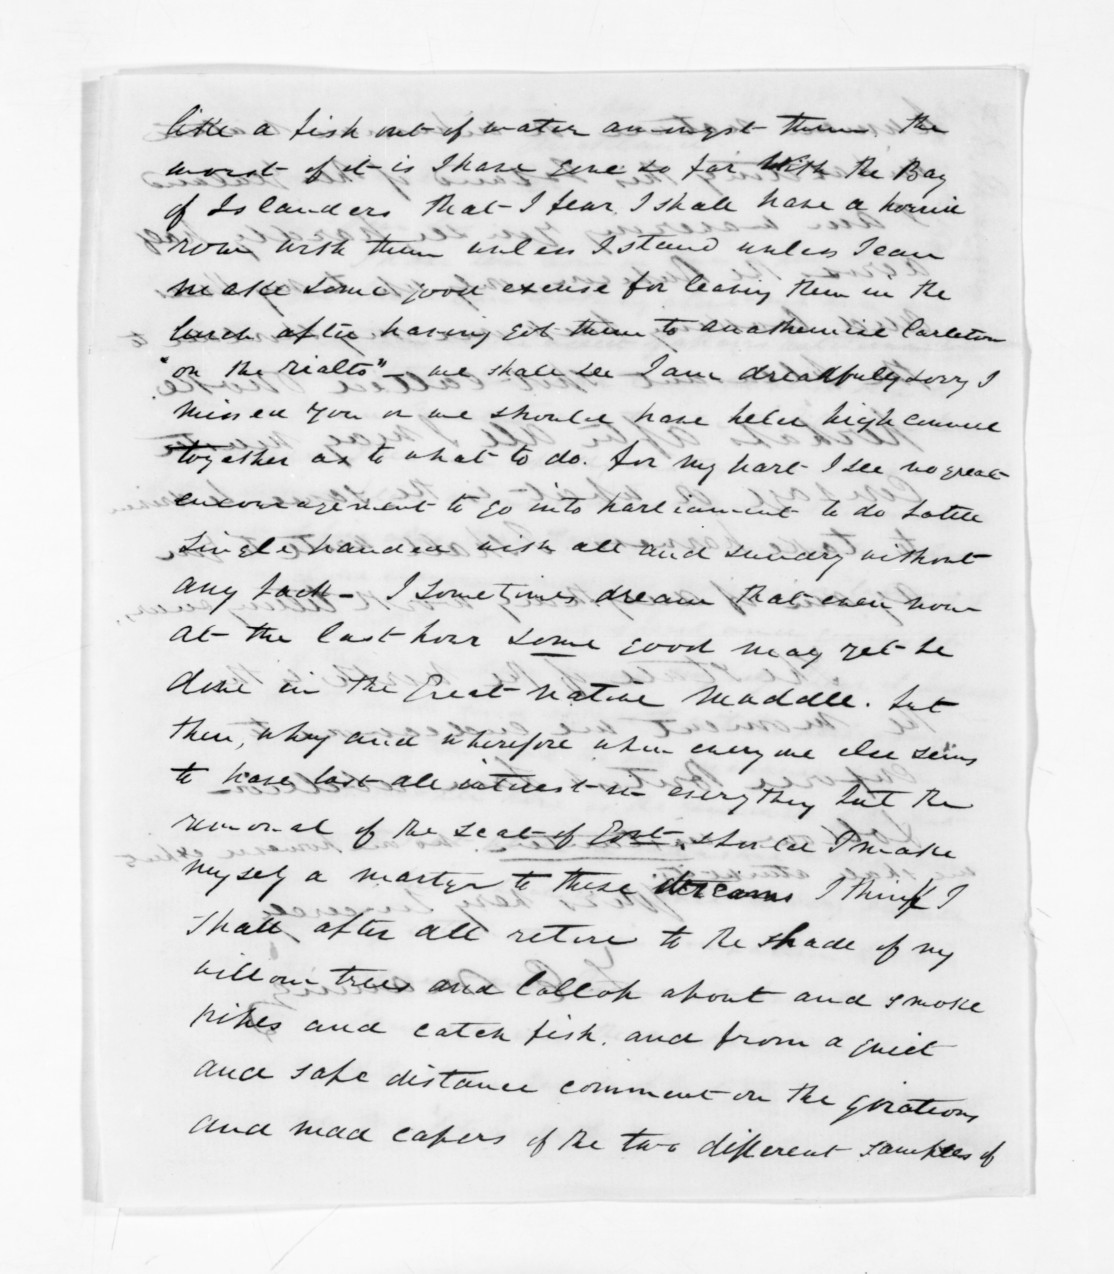 like a fish out of water amongst them. the
worst of it is I have gone so far with the Bay
of Islanders that I fear I shall have a
row with them unless I stand unless I can
make some good excuse for leaving them in the
lurch after having got them to anathemise Carleton
"on the rialto" – we shall see I am dreadfully sorry I
missed you or we should have held high council
together as to what to do. for my part I see no great
encouragement to go into parliament to do battle
single handed with all and sundry without
any back – I sometimes dream that even now
at the last hour some good may yet be
done in the Great Native Muddle. but
then, why and wherefore when every one else seems
to have lost all interest in every thing but the
removal of the seat of Govt. should I make
myself a martyr to these dreams I think I
shall after all retire to the shade of my
willow trees and lollop about and smoke
pipes and catch fish. and from a quiet
and safe distance comment on the girations
and mad capers of the two different samples of